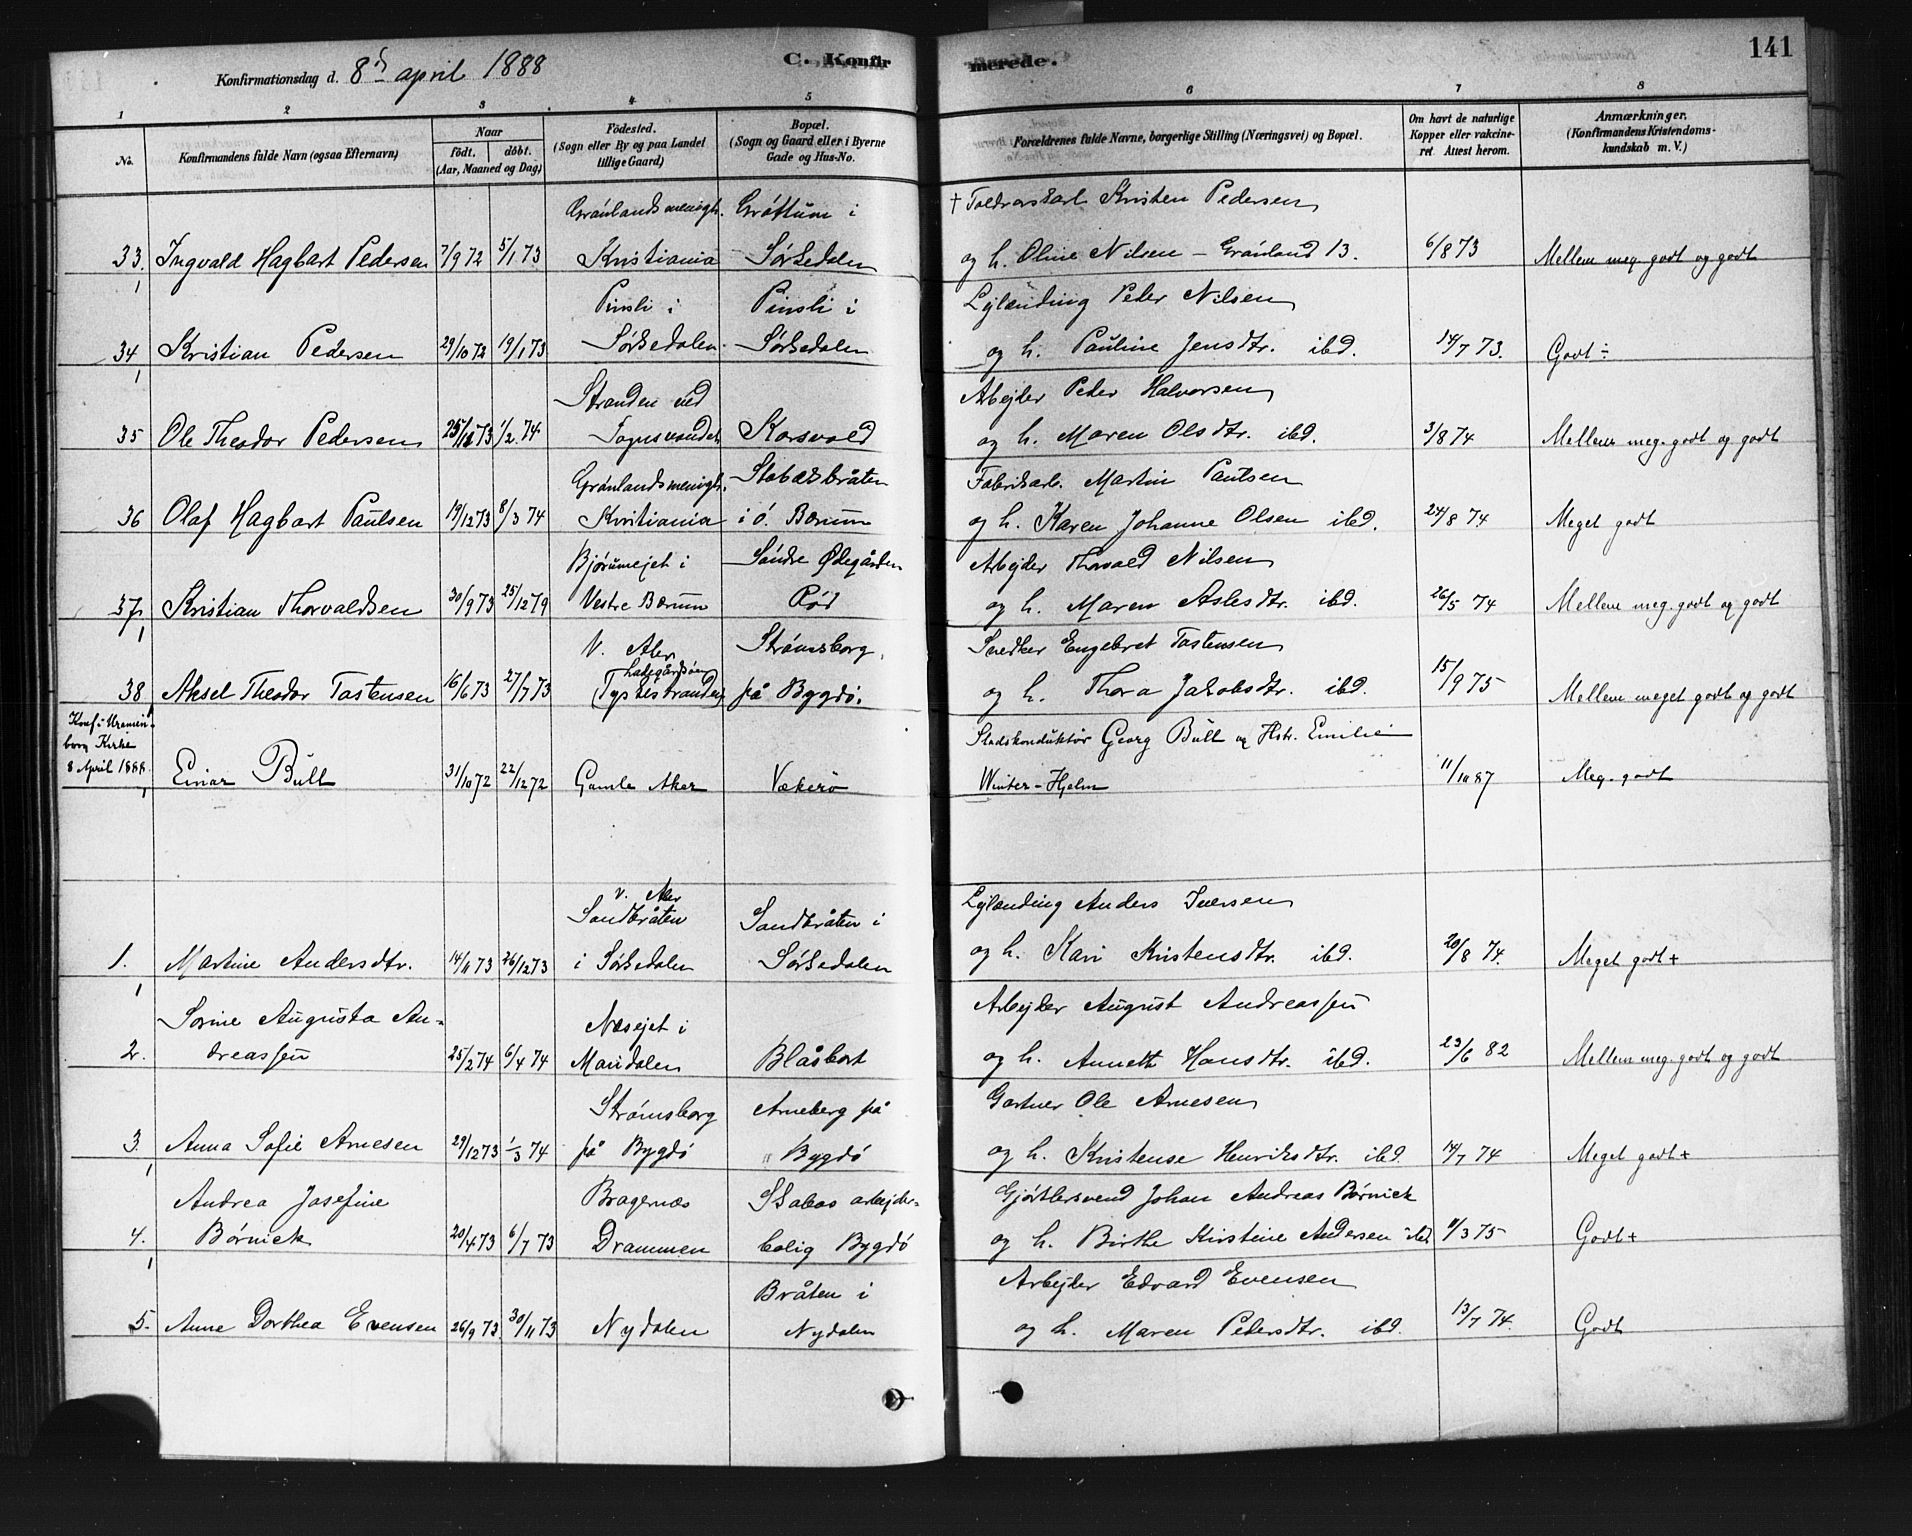 Konfirmationsdag d. 8d april 1888
C. Konfirmerede.
141
1 2 3 4 5 6 7 8
No.
Konfirmandens fulde Navn (ogsaa Efternavn)
Naar
födt. döbt.
(Aar, Maaned og Dag)
Födested.
(Sogn eller By og paa Landet
tillige Gaard)
Bopæl.
(Sogn og Gaard eller i Byerne
Gade og Hus-No.
Forældrenes fulde Navne, borgerlige Stilling (Næringsvei) og Bopæl.
Om havt de naturlige
Kopper eller vakcine-
ret Attest herom.
Anmærkninger.
(Konfirmandens Kristendoms-
kundskab m. V.)
Grønlandsmenigh. Grøttum i † Toldvorskarl Kristen Pedersen
33. Ingvald Hagbart Pedersen 7/9 72 5/1 73 Kristiania Sørkedalen og h. Oline Nilsen – Grønland 13. 6/8 73 Mellem meg. godt og godt
Pinsli i Pinsli i Lejlænding Peter Nilsen
34 Kristian Pedersen 29/10 72 19/1 73 Sørkedalen. Sørkedalen og h. Pauline Jensdtr. ibd. 14/7 73. Godt ÷
Stranden ved Arbejder Peter Halvorsen
35 Ole Theodor Pedersen 25/12 73 1/2 74 Sognsvandet Korsvold og h. Maren Olsdtr. ibd. 3/8 74 Mellem meg. godt og godt
Grønlandsmenigh. Stabæksbråten Fabrikarb. Martin Paulsen
36 Olaf Hagbart Paulsen 19/12 73 8/3 74 Kristiania i ö. Bærum og h. Karen Johanne Olsen ibd. 24/8 74 Meget godt
Bjørumejet i Søndre Ødegården Arbejder Thorvald Nilsen
37. Kristian Thorvaldsen 30/9 73 25/12 79 Vestre Bærum Röd og h. Maren Aslesdtr. ibd. 26/5 74 Mellem meg. godt og godt
V. Aker Strømsborg Snedker Engebret Tostensen
Ladegårdsöen
38 Aksel Theodor Tostensen 16/6 73 27/7 73 (Tyskestranden) på Bygdö. og h. Thora Jakobsdtr. ibd. 15/9 75 Mellem meget godt og godt
Konf. i Uranien-
borg Kirke
8 April 1888.
Stadskonduktör Georg Bull og Hstr. Emilie
Einar Bull 31/10 72 22/12 72 Gamle Aker Vækerö Winter-Hjelm 11/10 87 Meg. godt
v. Aker
Sandbråten Sandbråten i Lejlænding Anders Iversen
1. Martine Andersdtr. 14/11 73 26/12 73 i Sørkedalen Sørkedalen og h. Kari Kristensdtr. ibd. 20/8 74. Meget godt +
Sorine Augusta An- Næsejet i Arbejder August Andreassen
2. dreassen 25/2 74 6/4 74 Maridalen Blåsbort og h. Annette Hansdtr. ibd. 23/6 82 Mellem meg. godt og godt
Strømsborg Arneberg på Gartner Ole Arnesen
3. Anna Sofie Arnesen 29/12 73 1/3 74 på Bygdö " Bygdö og h. Kristense Henriksdtr. ibd. 14/7 74 Meget godt +
Andrea Josefine Bragernæs Skabos arbejder- Gjørtlersvend Johan Andreas Børnick
4. Børnick 20/4 73 6/7 73 Drammen bolig Bygdö og h. Birthe Kirstine Andersen ibd. 11/3 75 Godt +
Bråten i Arbejder Edvard Evensen
5. Anne Dorthea Evensen 26/9 73 30/11 73 Nydalen Nydalen og h. Maren Pedersdtr. ibd. 13/7 74. Godt